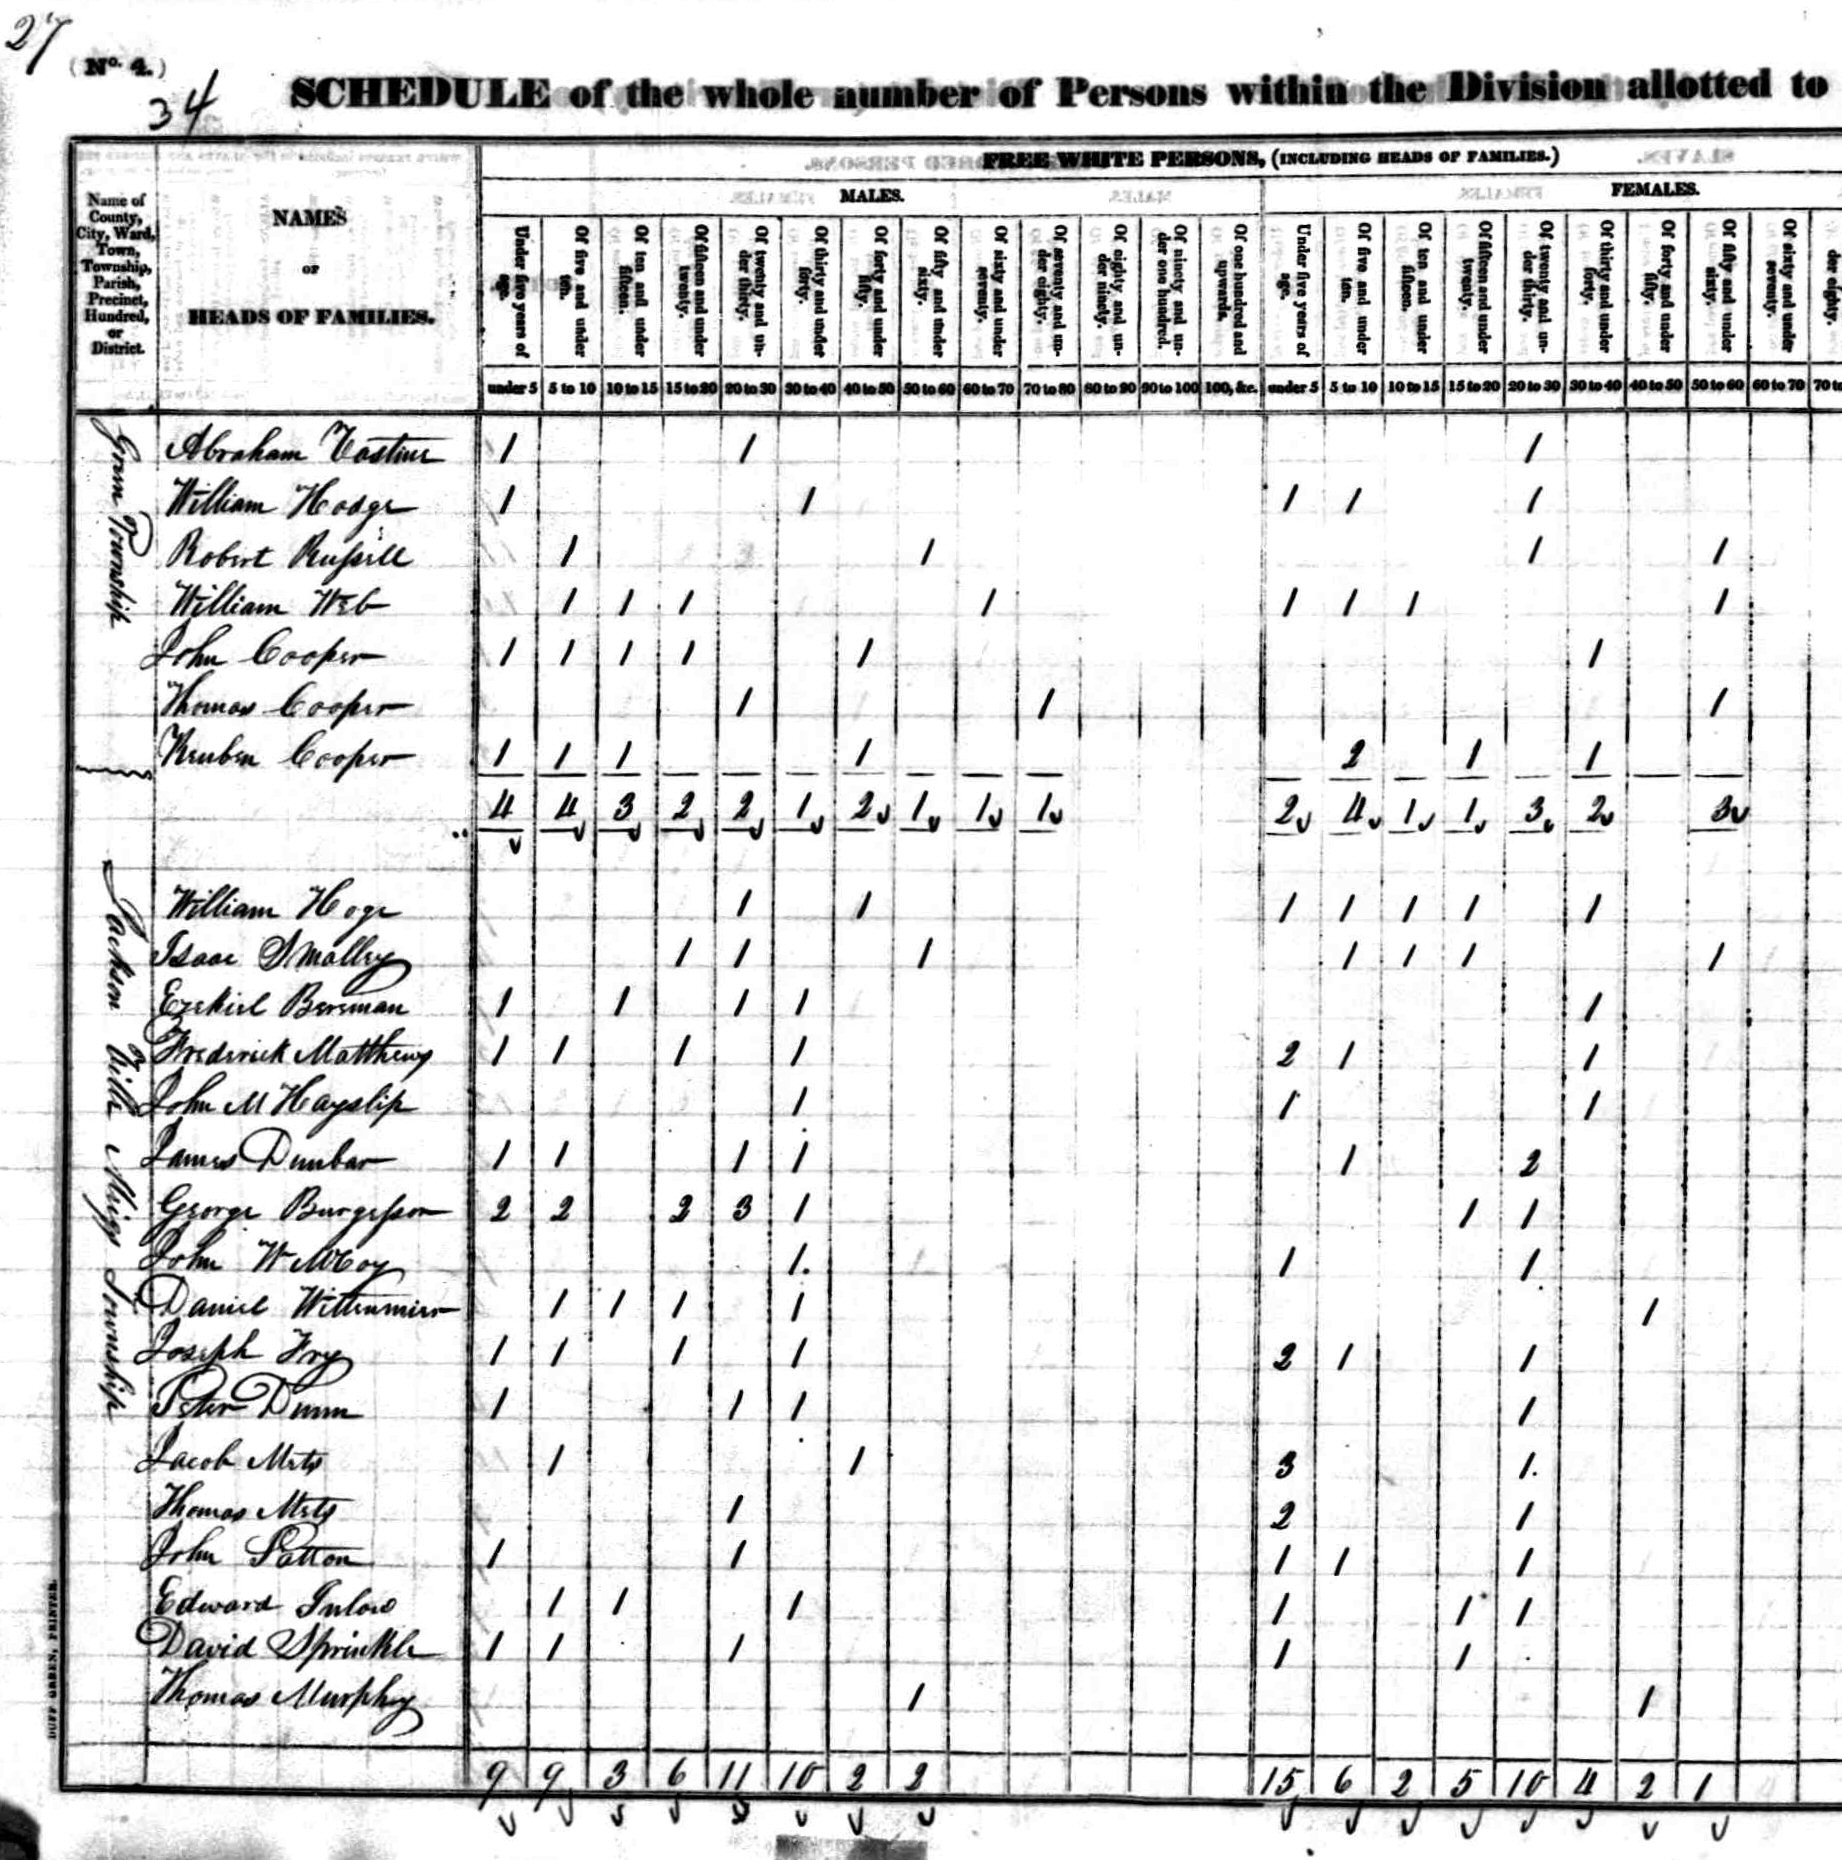 27
(No. 4.)
34
SCHEDULE of the whole number of Persons within the Division allotted to
FREE WHITE PERSONS, (INCLUDING HEADS OF FAMILIES.)
MALES. FEMALES.
Name of County, City, Ward, Town, Township, Parish, Precinct, Hundred, or District.
NAMES
OF
HEADS OF FAMILIES.
Under five years of age.
Of five and under ten.
Of ten and under fifteen.
Of fifteen and under twenty.
Of twenty and under thirty.
Of thirty and under forty.
Of forty and under fifty.
Of fifty and under sixty.
Of sixty and under seventy.
Of seventy and under eighty.
Of eighty and under ninety.
Of ninety and under one hundred.
Of one hundred and upwards.
Under five years of age.
Of five and under ten.
Of ten and under fifteen.
Of fifteen and under twenty.
Of twenty and under thirty.
Of thirty and under forty.
Of forty and under fifty.
Of fifty and under sixty.
Of sixty and under seventy.
der eighty.
under 5 5 to 10 10 to 15 15 to 20 20 to 30 30 to 40 40 to 50 50 to 60 60 to 70 70 to 80 80 to 90 90 to 100 100, &c. under 5 5 to 10 10 to 15 15 to 20 20 to 30 30 to 40 40 to 50 50 to 60 60 to 70 70 to
Green Township
Abraham 1 1 1
William Hodge 1 1 1 1 1
Robert Russell 1 1 1 1
William Web 1 1 1 1 1 1 1 1
John Cooper 1 1 1 1 1 1
Thomas Cooper 1 1 1
Reuben Cooper 1 1 1 1 2 1 1
4 4 3 2 2 1 2 1 1 1 2 4 1 1 3 2 3
Jackson Ville Meigs Township
William Hoge 1 1 1 1 1 1 1
Isaac Smalley 1 1 1 1 1 1 1
Ezekiel Bereman 1 1 1 1 1
Frederick Matthews 1 1 1 1 2 1 1
John M Hayslip 1 1 1
James Dunbar 1 1 1 1 1 2
George Burgesson 2 2 2 3 1 1 1
John W McCoy 1 1 1
Daniel Wittenmier 1 1 1 1 1
Joseph Fry 1 1 1 1 2 1 1
Peter Dunn 1 1 1 1
Jacob Mets 1 1 3 1
Thomas Mets 1 2 1
John Patton 1 1 1 1 1
Edward Inlow 1 1 1 1 1 1
David Sprinkle 1 1 1 1 1
Thomas Murphy 1 1
9 9 3 6 11 10 2 2 15 6 2 5 10 4 2 1
DUFF GREEN, PRINTER.